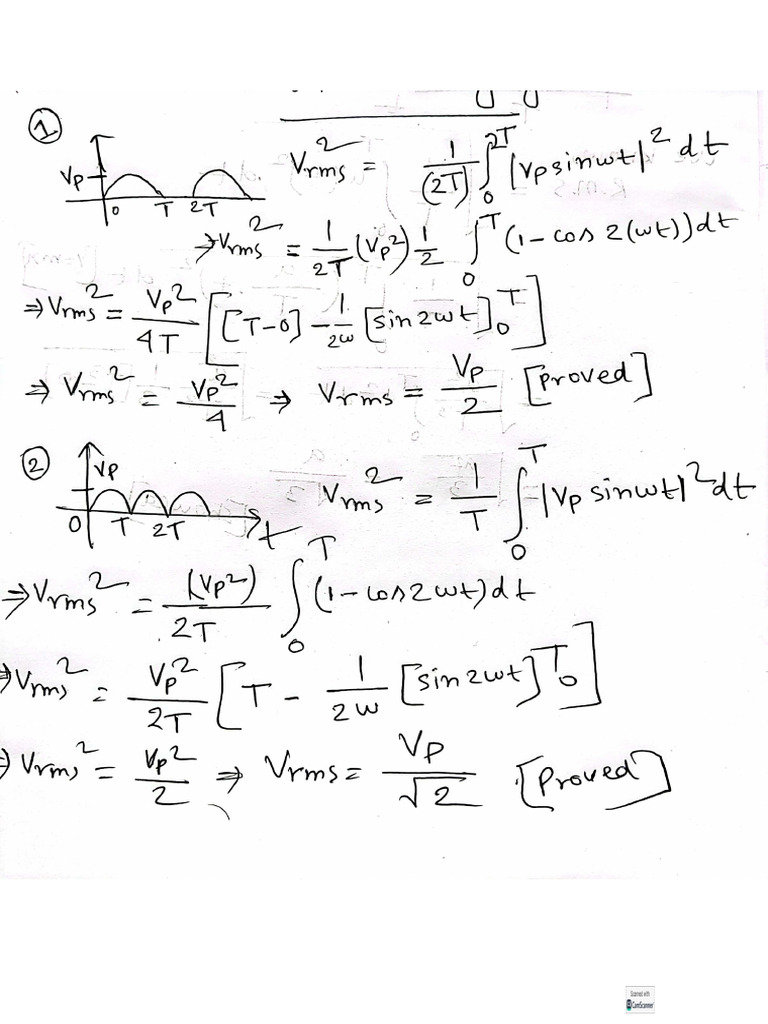 ①
Vp
0 T 2T
Vrms² = 1/(2T) ∫₀^2T |Vp sinwt|² dt
⇒ Vrms² = 1/2T (Vp²) 1/2 ∫₀^T (1 - cos 2(wt)) dt
⇒ Vrms² = Vp²/4T [[T-0] - 1/2w [sin 2wt]₀^T]
⇒ Vrms² = Vp²/4 ⇒ Vrms = Vp/2 [Proved]
②
Vp
0 T 2T t
Vrms² = 1/T ∫₀^T |Vp sinwt|² dt
⇒ Vrms² = (Vp²)/2T ∫₀^T (1 - cos2wt) dt
⇒ Vrms² = Vp²/2T [T - 1/2w [sin2wt]₀^T]
⇒ Vrms² = Vp²/2 ⇒ Vrms = Vp/√2 [Proved]
Scanned with
CamScanner